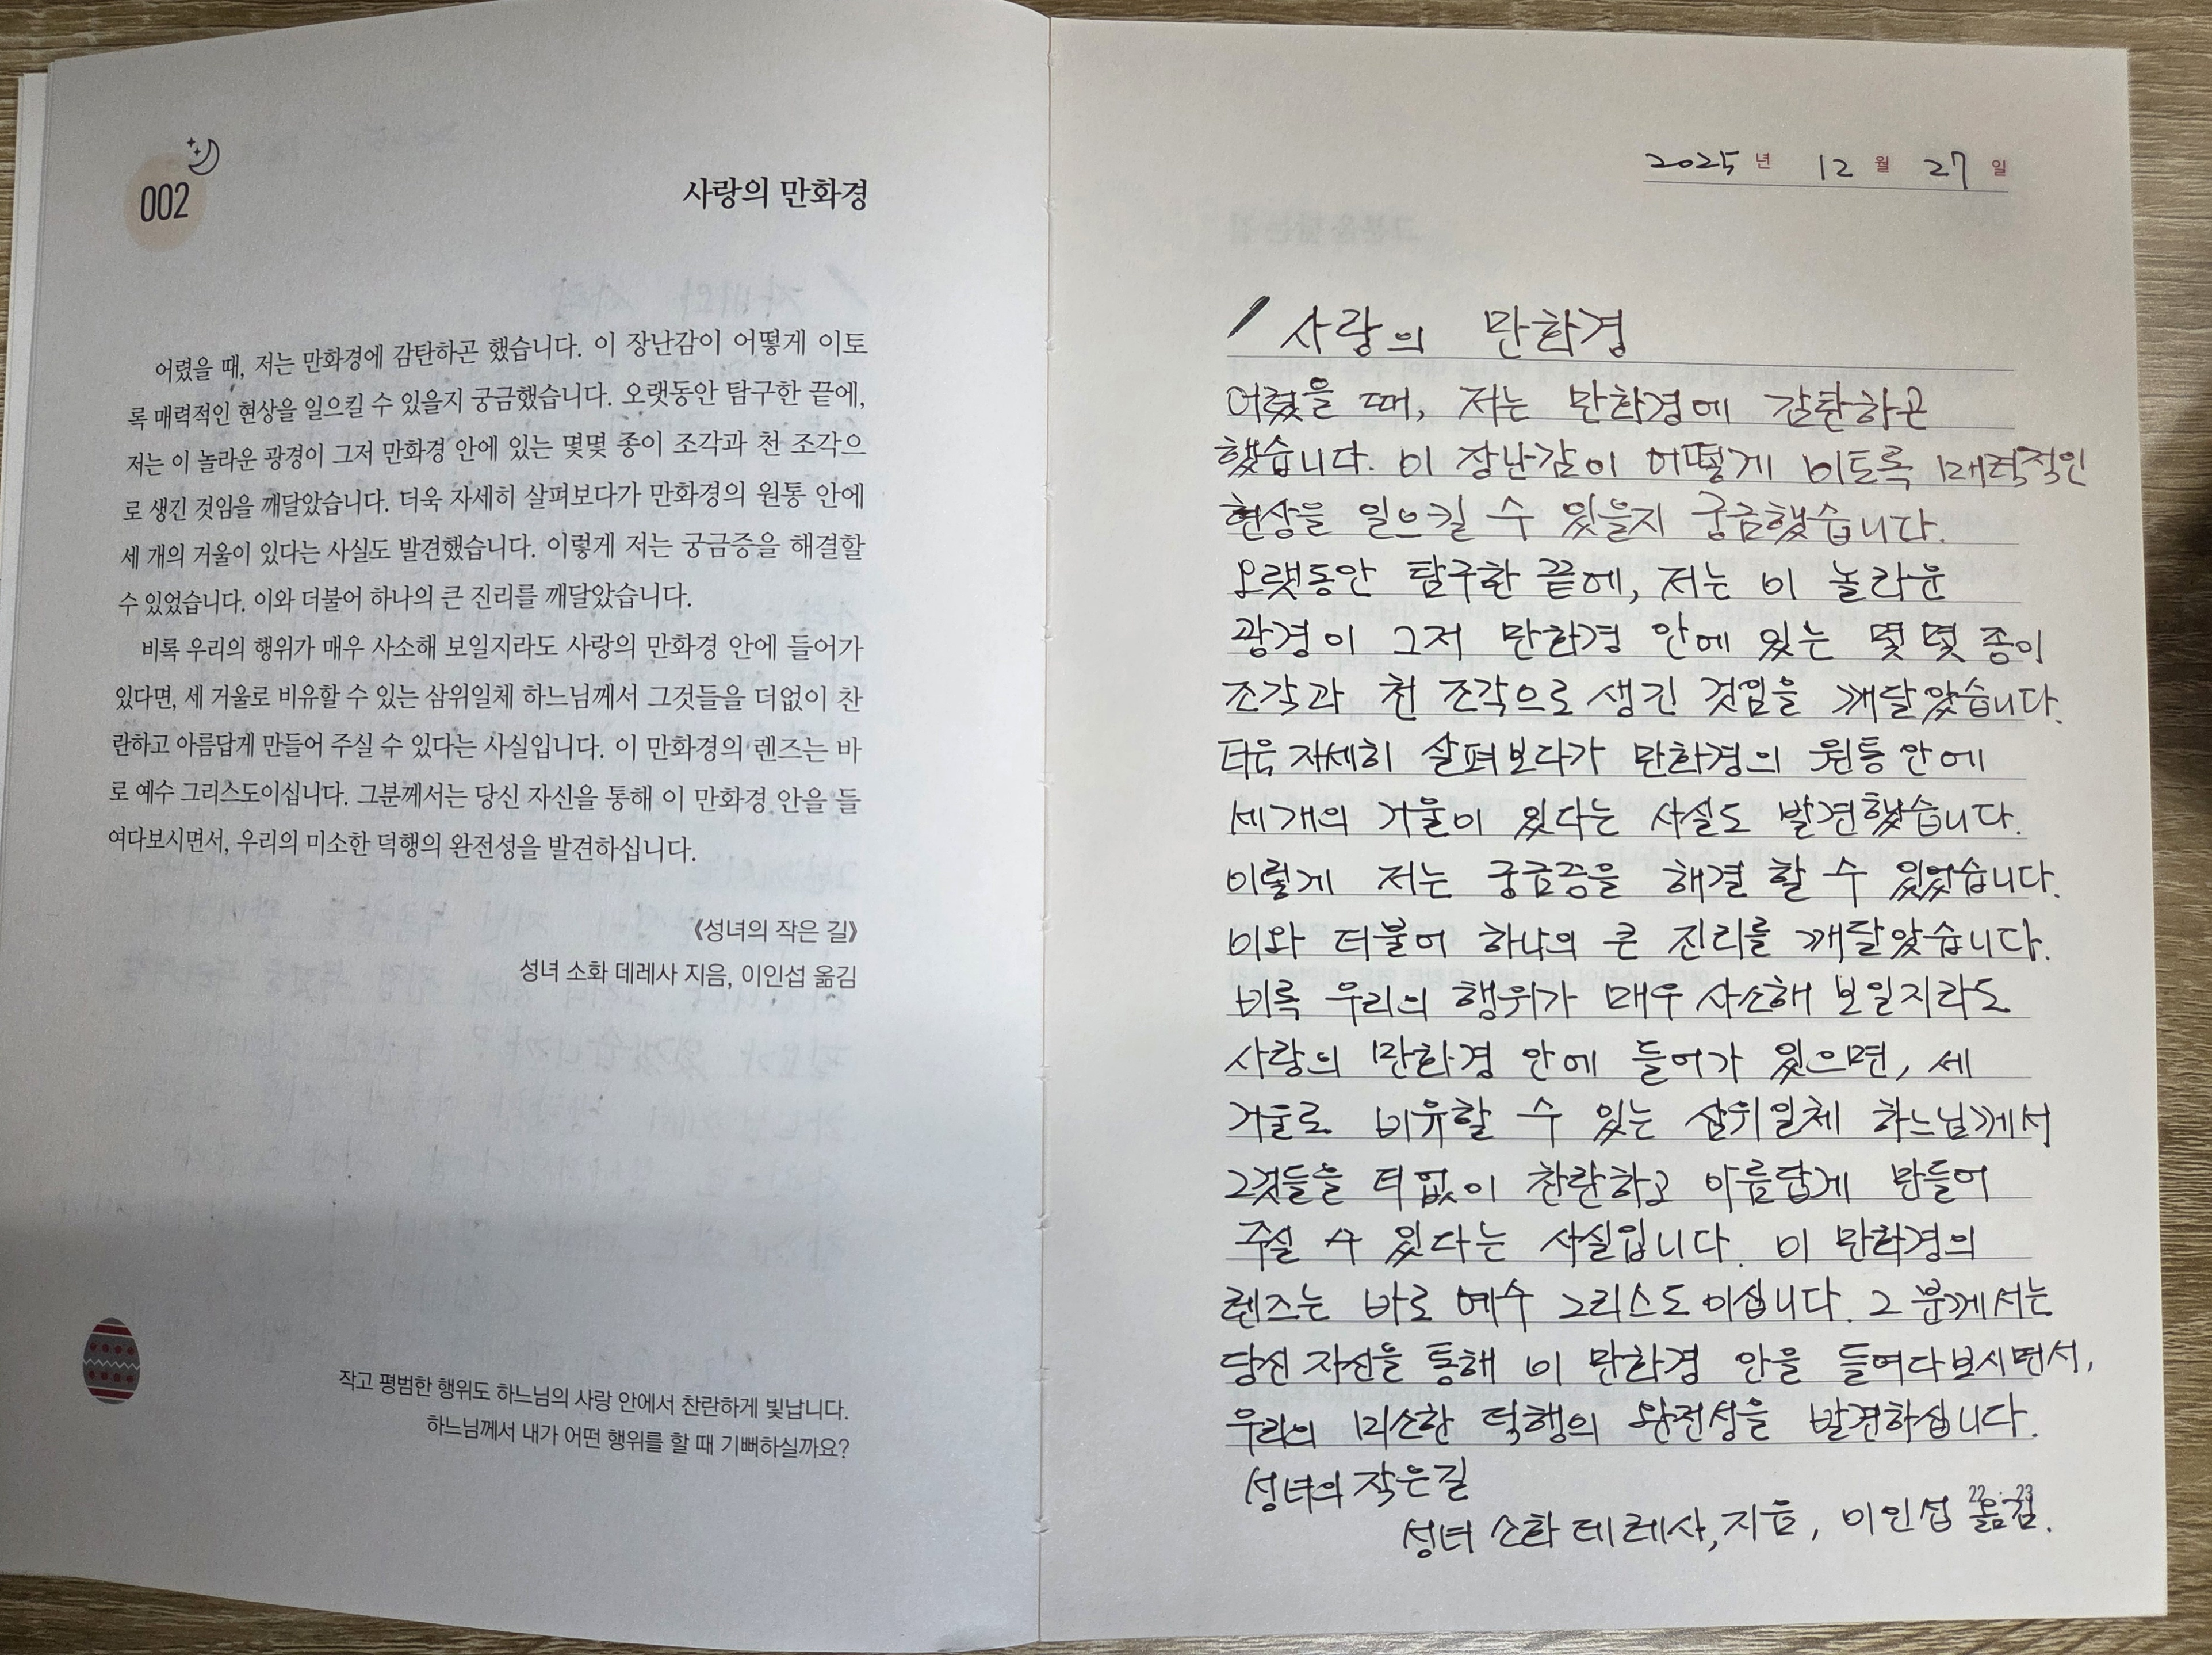 002
사랑의 만화경
어렸을 때, 저는 만화경에 감탄하곤 했습니다. 이 장난감이 어떻게 이토
록 매력적인 현상을 일으킬 수 있을지 궁금했습니다. 오랫동안 탐구한 끝에,
저는 이 놀라운 광경이 그저 만화경 안에 있는 몇몇 종이 조각과 천 조각으
로 생긴 것임을 깨달았습니다. 더욱 자세히 살펴보다가 만화경의 원통 안에
세 개의 거울이 있다는 사실도 발견했습니다. 이렇게 저는 궁금증을 해결할
수 있었습니다. 이와 더불어 하나의 큰 진리를 깨달았습니다.
비록 우리의 행위가 매우 사소해 보일지라도 사랑의 만화경 안에 들어가
있다면, 세 거울로 비유할 수 있는 삼위일체 하느님께서 그것들을 더없이 찬
란하고 아름답게 만들어 주실 수 있다는 사실입니다. 이 만화경의 렌즈는 바
로 예수 그리스도이십니다. 그분께서는 당신 자신을 통해 이 만화경 안을 들
여다보시면서, 우리의 미소한 덕행의 완전성을 발견하십니다.
《성녀의 작은 길》
성녀 소화 데레사 지음, 이인섭 옮김
작고 평범한 행위도 하느님의 사랑 안에서 찬란하게 빛납니다.
하느님께서 내가 어떤 행위를 할 때 기뻐하실까요?
2025년 12월 27일
사랑의 만화경
어렸을 때, 저는 만화경에 감탄하곤
했습니다. 이 장난감이 어떻게 이토록 매력적인
현상을 일으킬 수 있을지 궁금했습니다.
오랫동안 탐구한 끝에, 저는 이 놀라운
광경이 그저 만화경 안에 있는 몇몇 종이
조각과 천 조각으로 생긴 것임을 깨달았습니다.
더욱 자세히 살펴보다가 만화경의 원통 안에
세개의 거울이 있다는 사실도 발견했습니다.
이렇게 저는 궁금증을 해결 할 수 있었습니다.
이와 더불어 하나의 큰 진리를 깨달았습니다.
비록 우리의 행위가 매우 사소해 보일지라도
사랑의 만화경 안에 들어가 있으면, 세
거울로 비유할 수 있는 삼위일체 하느님께서
그것들을 더없이 찬란하고 아름답게 만들어
주실 수 있다는 사실입니다. 이 만화경의
렌즈는 바로 예수 그리스도이십니다. 그분께서는
당신 자신을 통해 이 만화경 안을 들여다보시면서,
우리의 미소한 덕행의 완전성을 발견하십니다.
성녀의 작은길
성녀 소화 데레사, 지음, 이인섭 옮김.
22 · 23